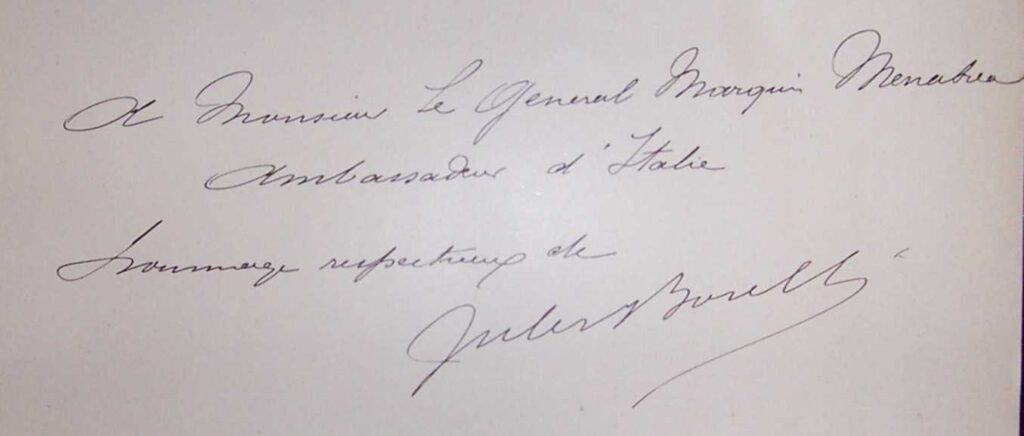 A Monsieur Le General Marquis Menabrea
Ambassadeur d'Italie
hommage respectueux de
Jules Borelli